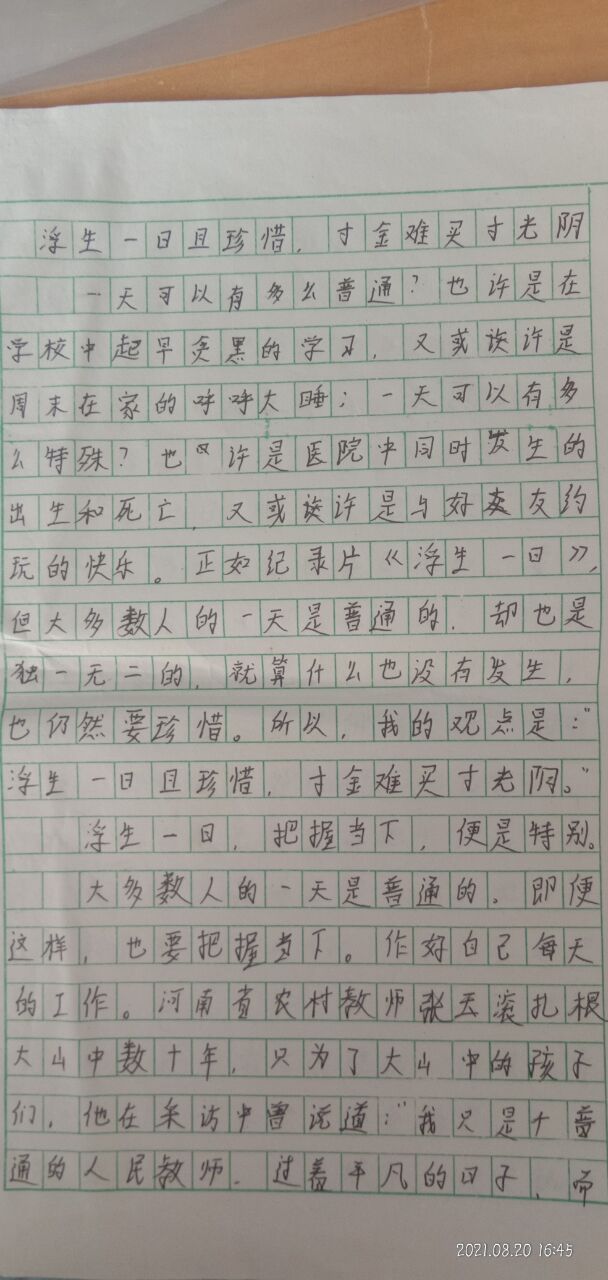 浮生一日且珍惜，寸金难买寸光阴
一天可以有多么普通？也许是在
学校中起早贪黑的学习，又或许是
周末在家的呼呼大睡；一天可以有多
么特殊？也许是医院中同时发生的
出生和死亡，又或许是与好友约
玩的快乐。正如纪录片《浮生一日》，
但大多数人的一天是普通的，却也是
独一无二的，就算什么也没有发生，
也仍然要珍惜。所以，我的观点是：“
浮生一日且珍惜，寸金难买寸光阴。”
浮生一日，把握当下，便是特别。
大多数人的一天是普通的。即便
这样，也要把握当下。作好自己每天
的工作。河南省农村教师张玉滚扎根
大山中数十年，只为了大山中的孩子
们，他在采访中曾说道：“我只是个普
通的人民教师，过着平凡的日子，而
2021.08.20 16:45